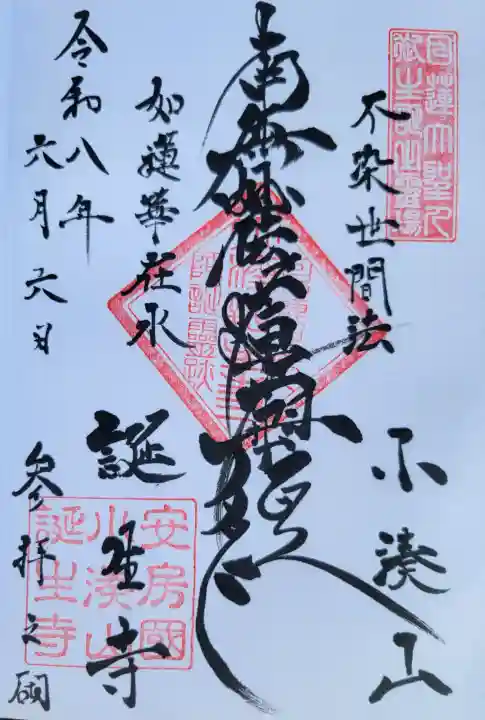 日蓮大聖人
御生誕之霊場
不染世間法
小湊山
南無妙法蓮華経
如蓮華在水
誕生寺
安房國
小湊山
誕生寺
令和八年
六月六日
参拝之砌